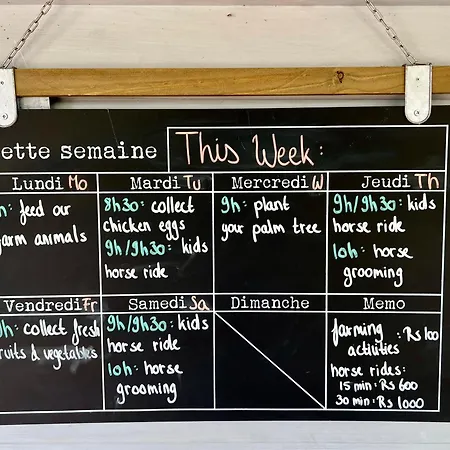 ette semaine This Week:
Lundi Mo
h: feed our
arm animals
Mardi Tu
8h30: collect
chicken eggs
9h/9h30: kids
horse ride
Mercredi W
9h: plant
your palm tree
Jeudi Th
9h/9h30: kids
horse ride
10h: horse
grooming
Vendredi Fr
h: collect fresh
ruits & vegetables
Samedi Sa
9h/9h30: kids
horse ride
10h: horse
grooming
Dimanche
Memo
farming : Rs 100
activities
horse rides:
15 min: Rs 600
30 min: Rs 1000